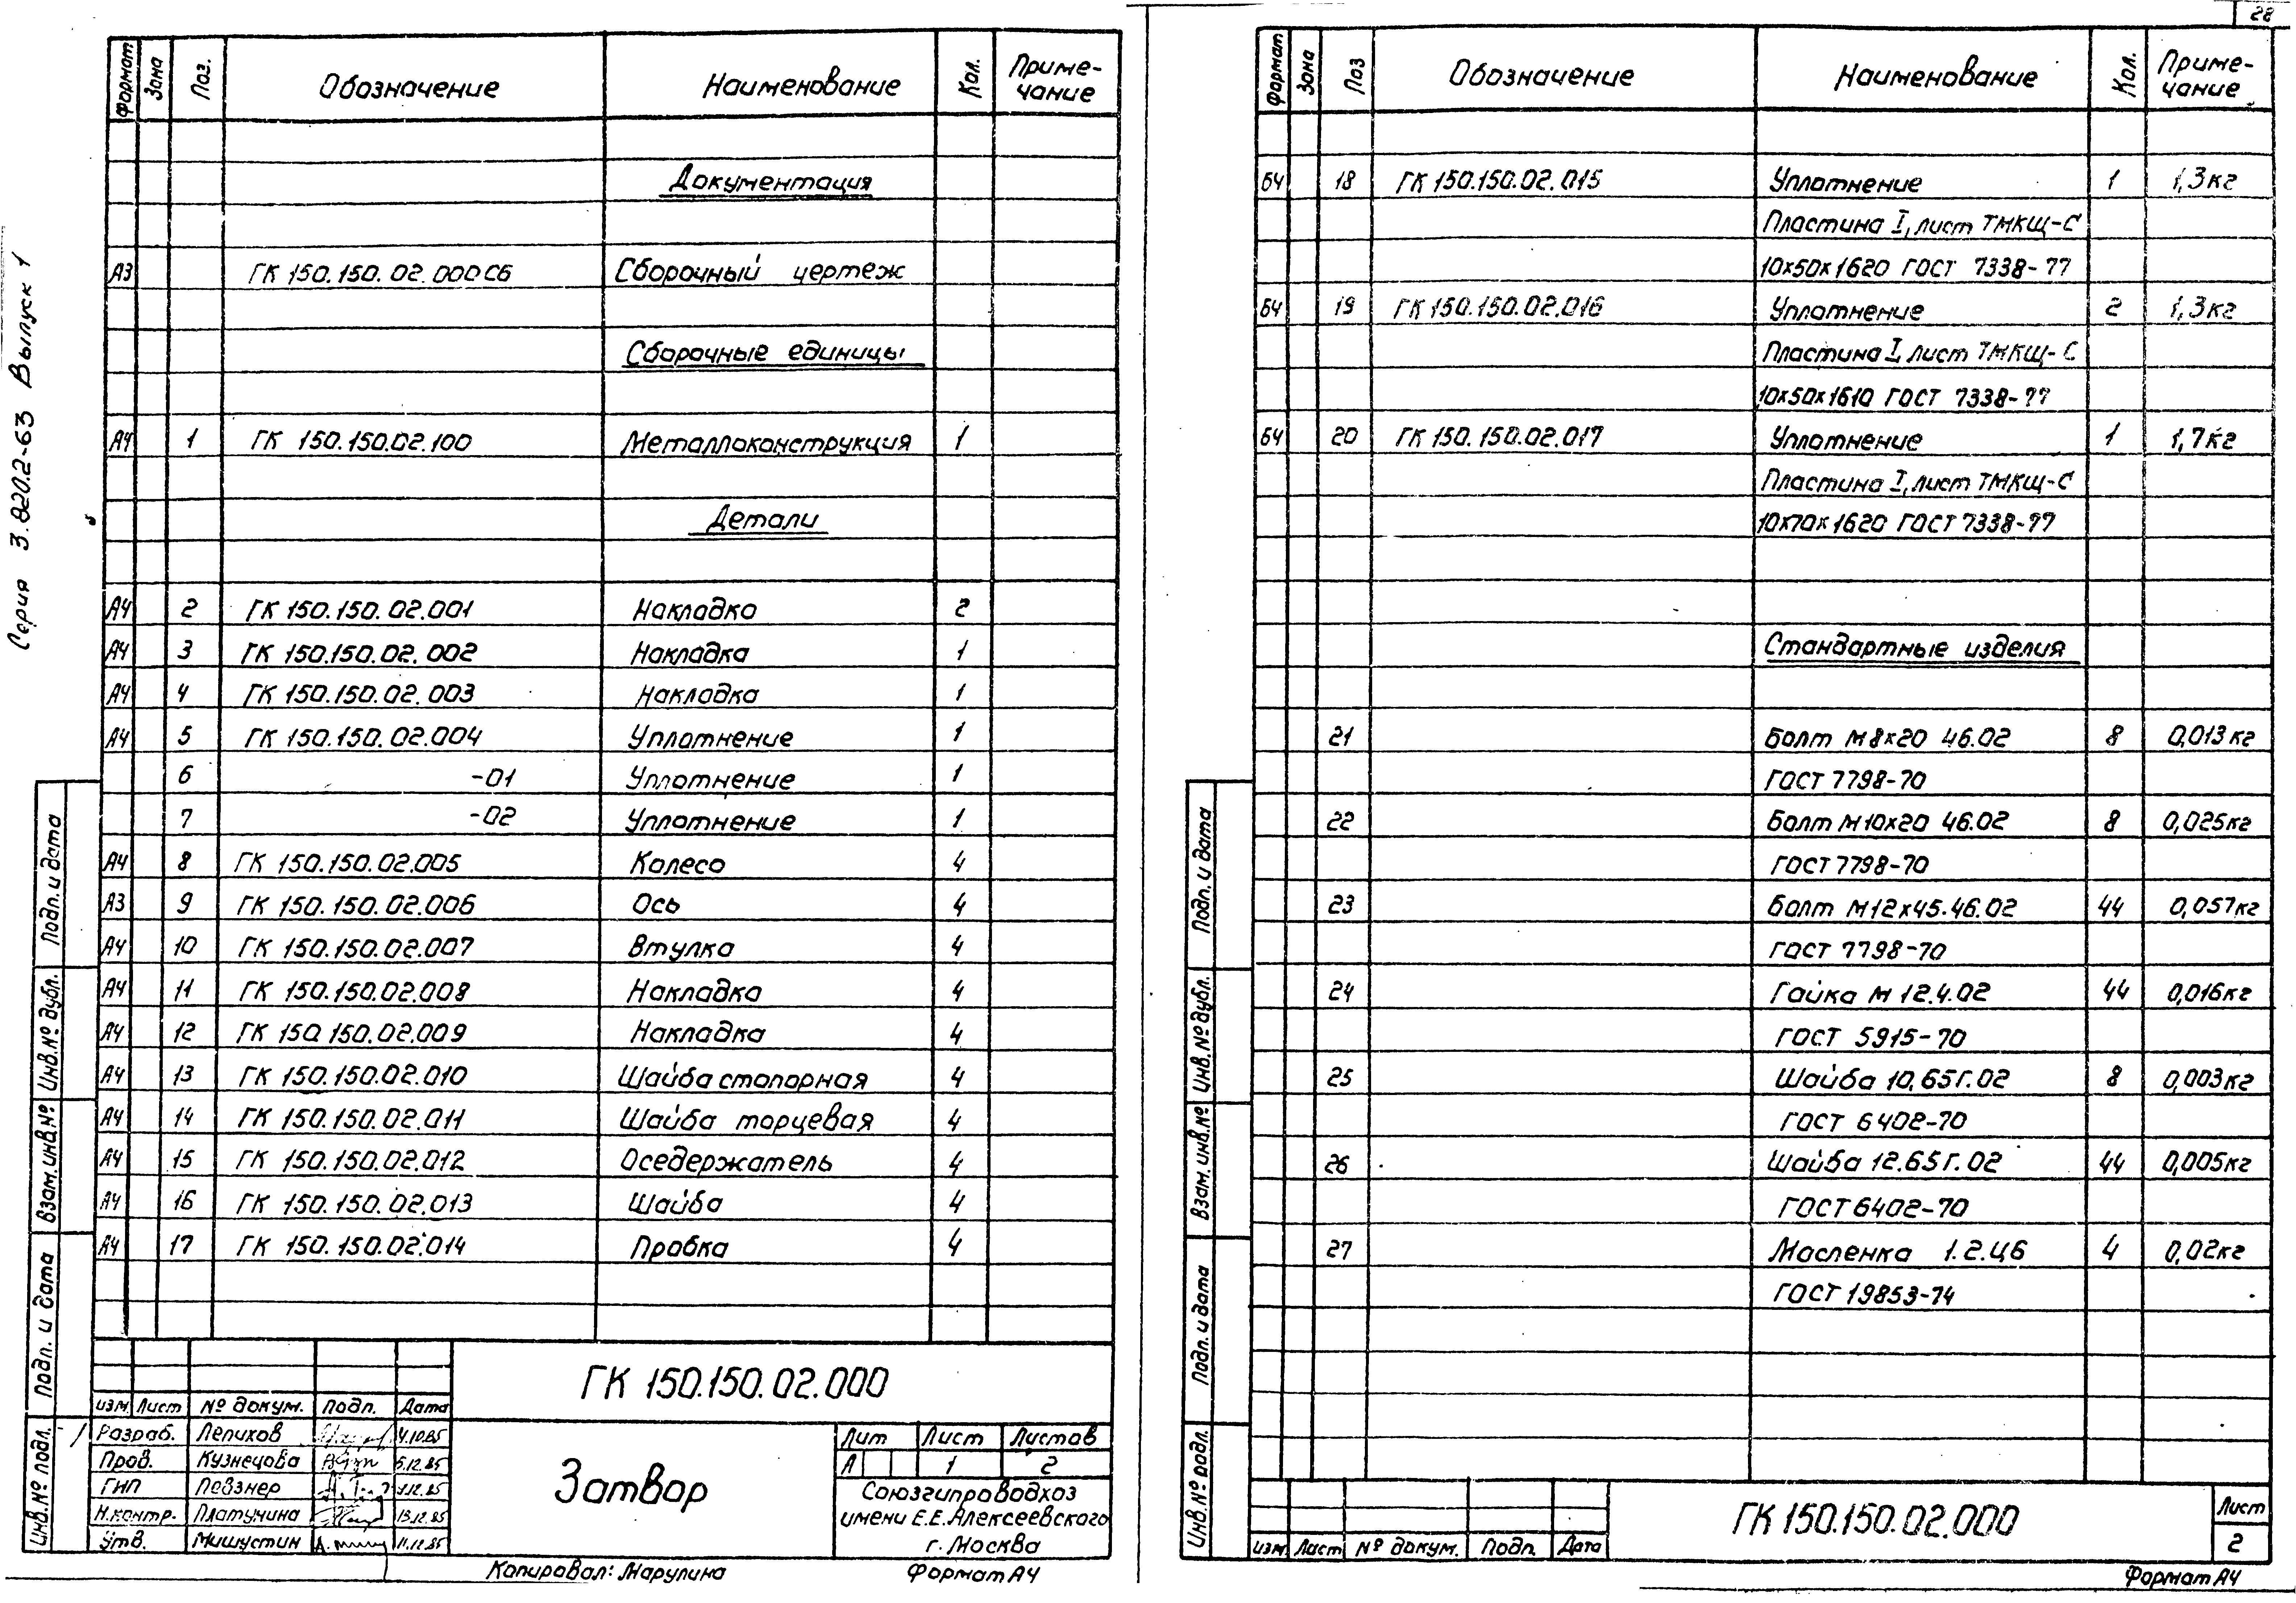 28
Серия 3.820.2-63 Выпуск 1
Формат Зона Поз. Обозначение Наименование Кол. Приме-
чание
Документация
А3 ГК 150.150.02.000СБ Сборочный чертеж
Сборочные единицы
А4 1 ГК 150.150.02.100 Металлоконструкция 1
Детали
А4 2 ГК 150.150.02.001 Накладка 2
А4 3 ГК 150.150.02.002 Накладка 1
А4 4 ГК 150.150.02.003 Накладка 1
А4 5 ГК 150.150.02.004 Уплотнение 1
6 -01 Уплотнение 1
7 -02 Уплотнение 1
А4 8 ГК 150.150.02.005 Колесо 4
А3 9 ГК 150.150.02.006 Ось 4
А4 10 ГК 150.150.02.007 Втулка 4
А4 11 ГК 150.150.02.008 Накладка 4
А4 12 ГК 150.150.02.009 Накладка 4
А4 13 ГК 150.150.02.010 Шайба стопорная 4
А4 14 ГК 150.150.02.011 Шайба торцевая 4
А4 15 ГК 150.150.02.012 Оседержатель 4
А4 16 ГК 150.150.02.013 Шайба 4
А4 17 ГК 150.150.02.014 Пробка 4
Подп. и дата
Инв.№ дубл.
Взам.инв.№
Подп. и дата
Инв.№ подл.
ГК 150.150.02.000
Изм. Лист № докум. Подп. Дата
Разраб. Лепихов 4.10.85
Пров. Кузнецова 5.12.85
ГИП Певзнер 12.85
Н.контр. Платунина 13.12.85
Утв. Мишустин 11.12.85
Затвор
Лит Лист Листов
А 1 2
Союзгипроводхоз
имени Е.Е.Алексеевского
г. Москва
Копировал: Марулина Формат А4
Формат Зона Поз Обозначение Наименование Кол. Приме-
чание
БЧ 18 ГК 150.150.02.015 Уплотнение 1 1,3кг
Пластина I, лист ТМКЩ-С
10х50х1620 ГОСТ 7338-77
БЧ 19 ГК 150.150.02.016 Уплотнение 2 1,3кг
Пластина I, лист ТМКЩ-С
10х50х1610 ГОСТ 7338-77
БЧ 20 ГК 150.150.02.017 Уплотнение 1 1,7кг
Пластина I, лист ТМКЩ-С
10х70х1620 ГОСТ 7338-77
Стандартные изделия
21 Болт М8х20 46.02 8 0,013кг
ГОСТ 7798-70
22 Болт М10х20 46.02 8 0,025кг
ГОСТ 7798-70
23 Болт М12х45.46.02 44 0,057кг
ГОСТ 7798-70
24 Гайка М 12.4.02 44 0,016кг
ГОСТ 5915-70
25 Шайба 10.65Г.02 8 0,003кг
ГОСТ 6402-70
26 Шайба 12.65Г.02 44 0,005кг
ГОСТ 6402-70
27 Масленка 1.2.Ц6 4 0,02кг
ГОСТ 19853-74
Подп. и дата
Инв.№ дубл.
Взам.инв.№
Подп. и дата
Инв.№ подл.
Изм. Лист № докум. Подп. Дата
ГК 150.150.02.000
Лист
2
Формат А4